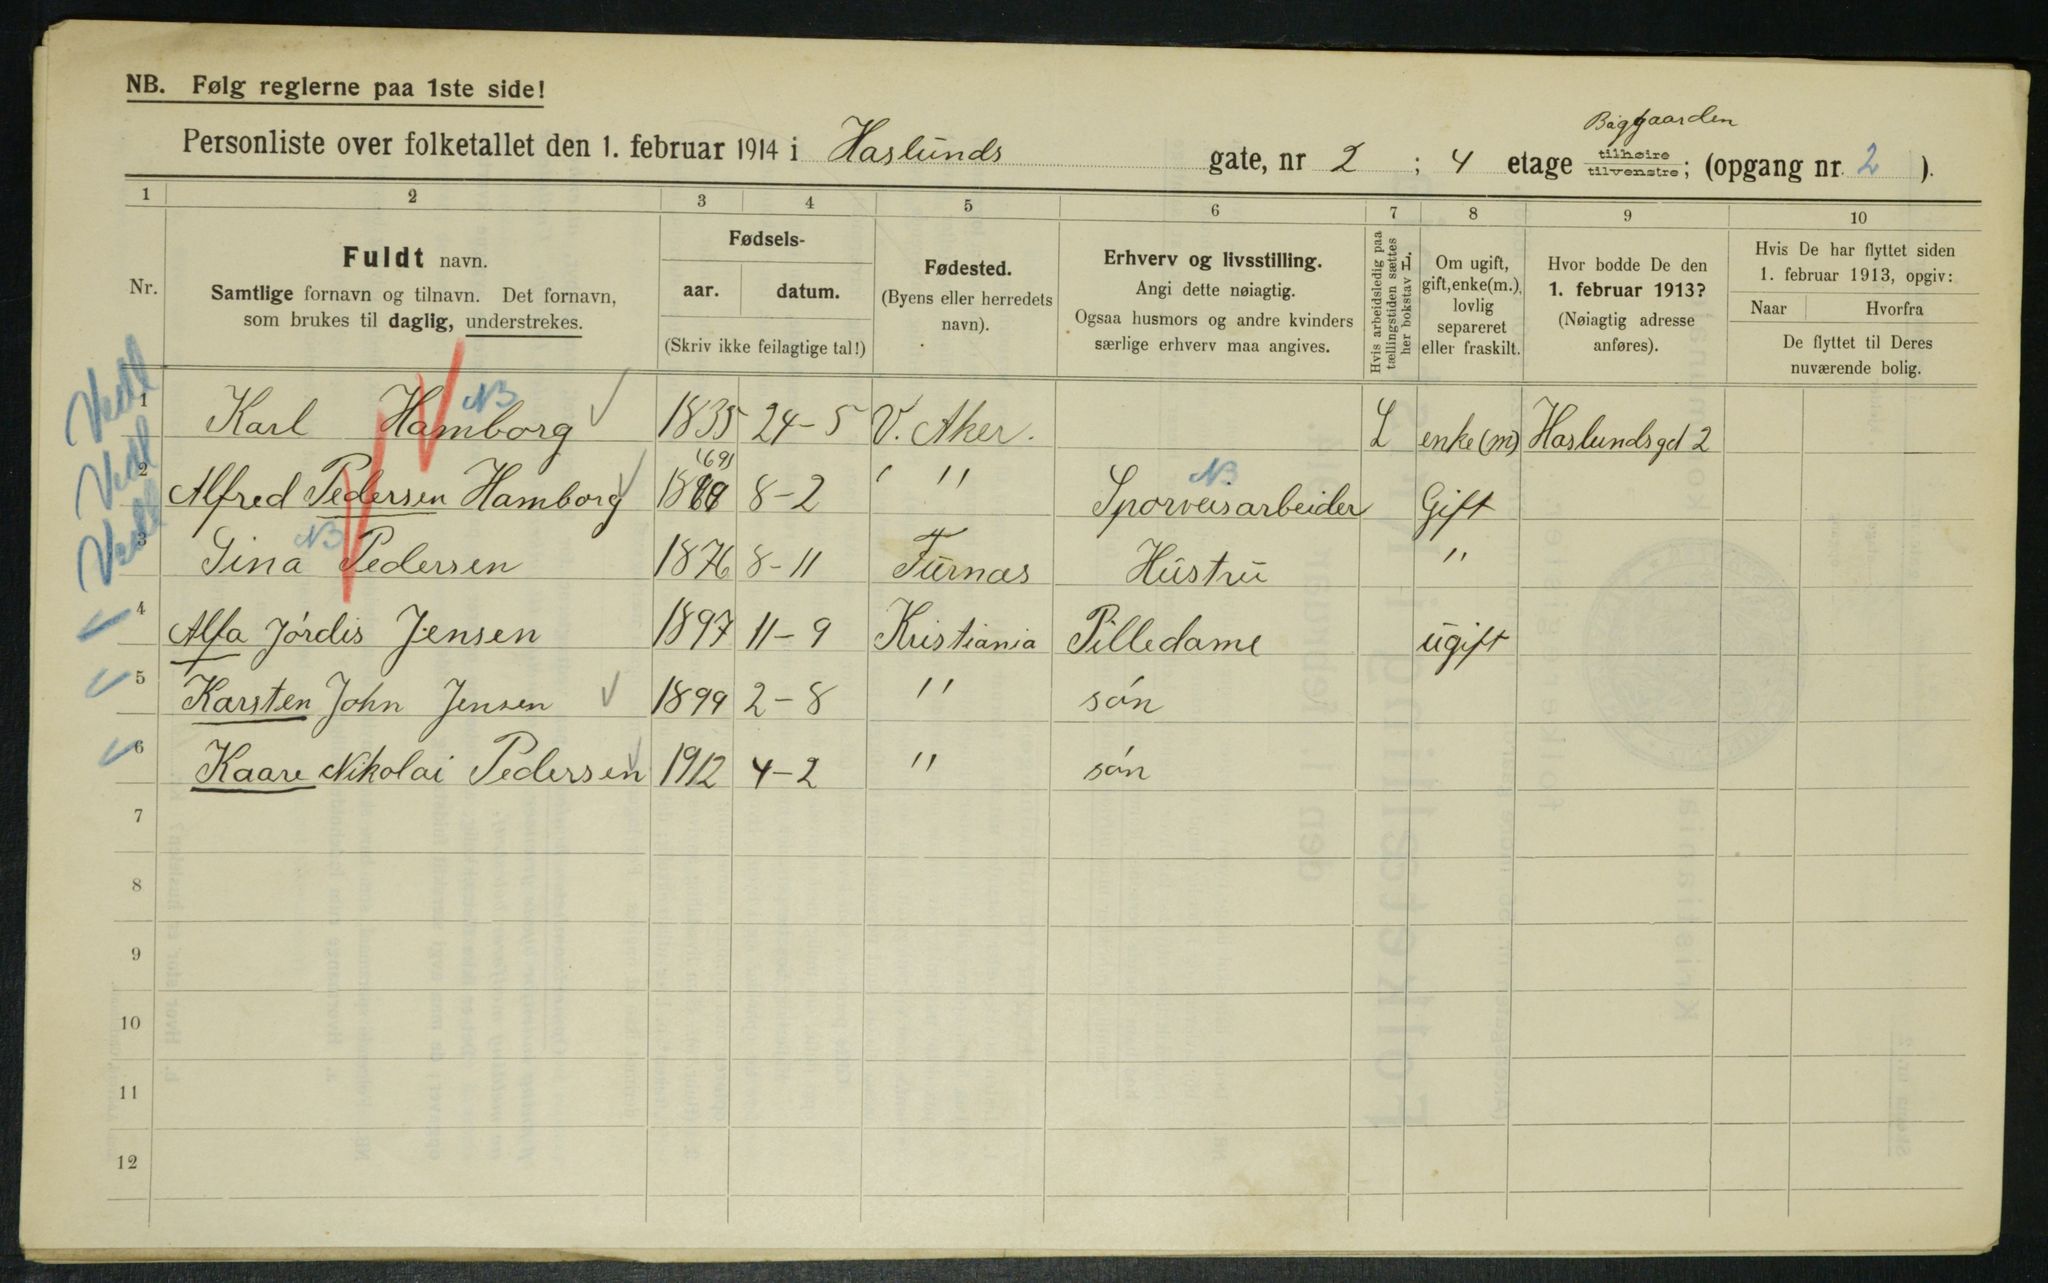 NB. Følg reglerne paa 1ste side!
Baggaarden
Personliste over folketallet den 1. februar 1914 i Haslunds gate, nr 2 ; 4 etage tilhøire tilvenstre; (opgang nr. 2 ).
1 2 3 4 5 6 7 8 9 10
Nr.
Fuldt navn.
Samtlige fornavn og tilnavn. Det fornavn,
som brukes til daglig, understrekes.
Fødsels-
aar. datum.
(Skriv ikke feilagtige tal!)
Fødested.
(Byens eller herredets
navn).
Erhverv og livsstilling.
Angi dette nøiagtig.
Ogsaa husmors og andre kvinders
særlige erhverv maa angives.
Hvis arbeidsledig paa
tællingstiden sættes
her bokstav L.
Om ugift,
gift, enke(m.),
lovlig
separeret
eller fraskilt.
Hvor bodde De den
1. februar 1913?
(Nøiagtig adresse
anføres).
Hvis De har flyttet siden
1. februar 1913, opgiv:
Naar Hvorfra
De flyttet til Deres
nuværende bolig.
NB
1 Karl Hamborg 1835 24-5 V. Aker. L enke(m) Haslundsgd 2
(69)
NB
2 Alfred Pedersen Hamborg 8-2 " " Sporveisarbeider Gift
NB
3 Gina Pedersen 1876 8-11 Furnæs Hustru "
4 Alfa Jórdis Jensen 1897 11-9 Kristiania Pilledame ugift
5 Karsten John Jensen 1899 2-8 " són
6 Kaare Nikolai Pedersen 1912 4-2 " són
7
8
9
10
11
12